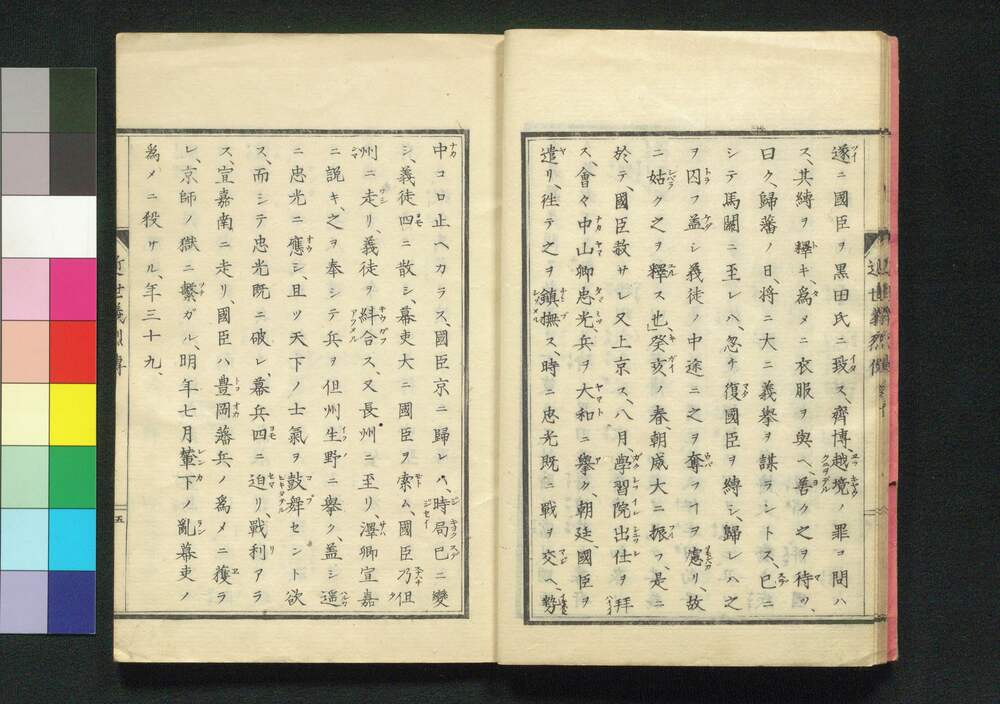 遂ニ國臣ヲ黒田氏ニ致ス、齊博越境ノ罪ヲ問ハ
ス、其縛ヲ釋キ、為メニ衣服ヲ與ヘ、善ク之ヲ待ツ、
曰ク、歸藩ノ日、將ニ大ニ義擧ヲ謀ラントス、已ニ
シテ馬關ニ至レハ、忽チ復國臣ヲ縛シ、歸レハ之
ヲ囚フ、盖シ義徒ノ中途ニ之ヲ奪フヿヲ慮リ、故
ニ姑ク之ヲ釋ス也、癸亥ノ春、朝威大ニ振フ、是ニ
於テ、國臣赦サレ又上京ス、八月學習院出仕ヲ拜
ス、會々中山卿忠光、兵ヲ大和ニ擧ク、朝廷國臣ヲ
遣リ、徃テ之ヲ鎮撫ス、時ニ忠光既ニ戰ヲ交ヘ、勢
近世義烈傳
中コロ止ヘカラス、國臣京ニ歸レハ、時局已ニ變
シ、義徒四ニ散シ、幕吏大ニ國臣ヲ索ム、國臣乃但
州ニ走リ、義徒ヲ糾合ス、又長州ニ至リ、澤卿宣嘉
ニ説キ、之ヲ奉シテ兵ヲ但州生野ニ擧ク、盖シ遥
ニ忠光ニ應シ、且ツ天下ノ士氣ヲ鼓舞セント欲
ス、而シテ忠光既ニ破レ、幕兵四ニ迫リ、戰利アラ
ス、宣嘉南ニ走リ、國臣ハ豊岡藩兵ノ為メニ獲ラ
レ、京師ノ獄ニ繋ガル、明年七月輦下ノ亂、幕吏ノ
為メニ殺サル、年三十九、
近世義烈傳
五